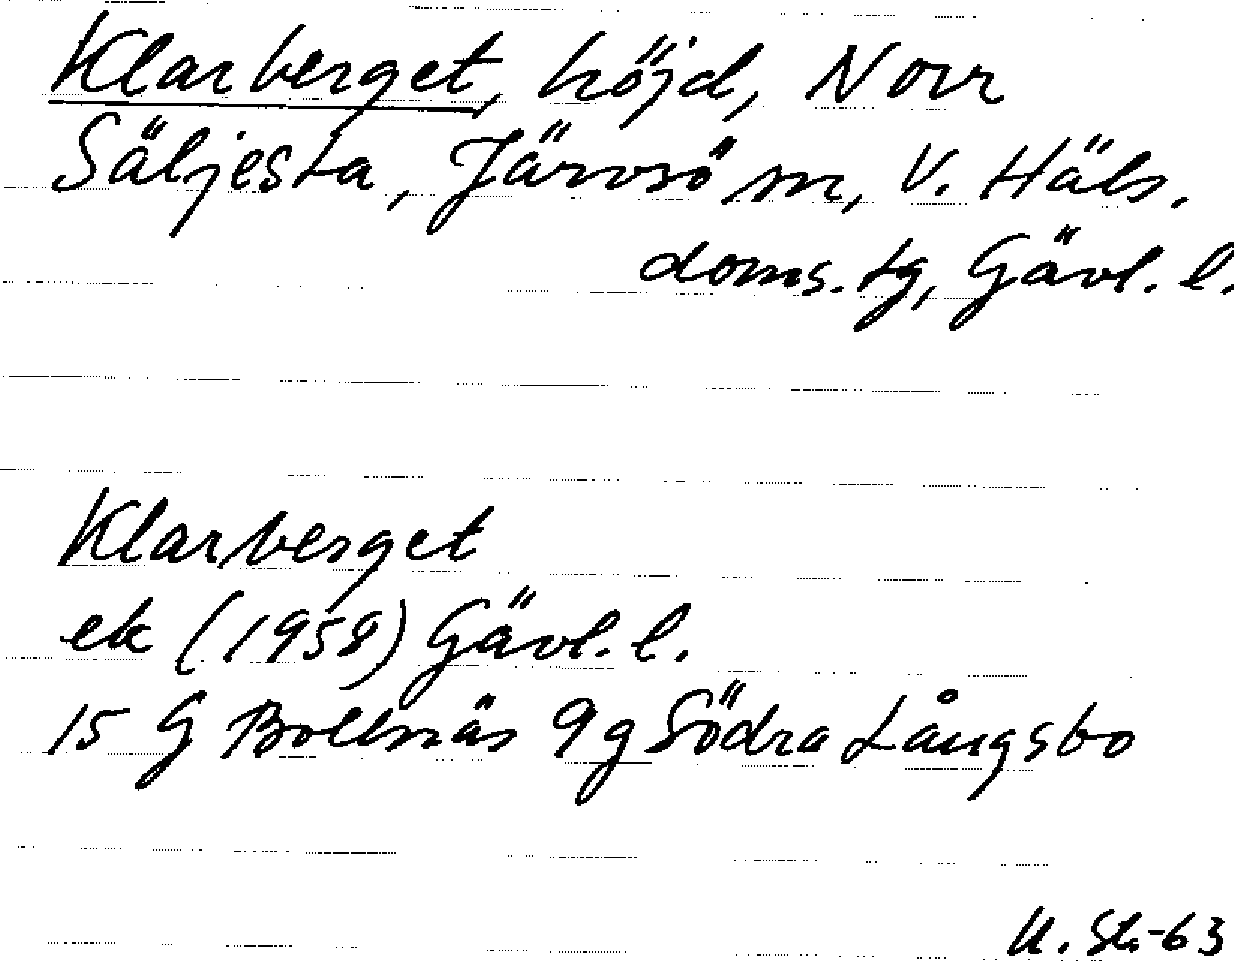 Klarberget, höjd, Norr
Säljesta, Järvsö sn, V. Häls.
doms. tg, Gävl. l.
Klarberget
ek (1958) Gävl. l.
15 G Bollnäs 9g Södra Långsbo
U. St. -63